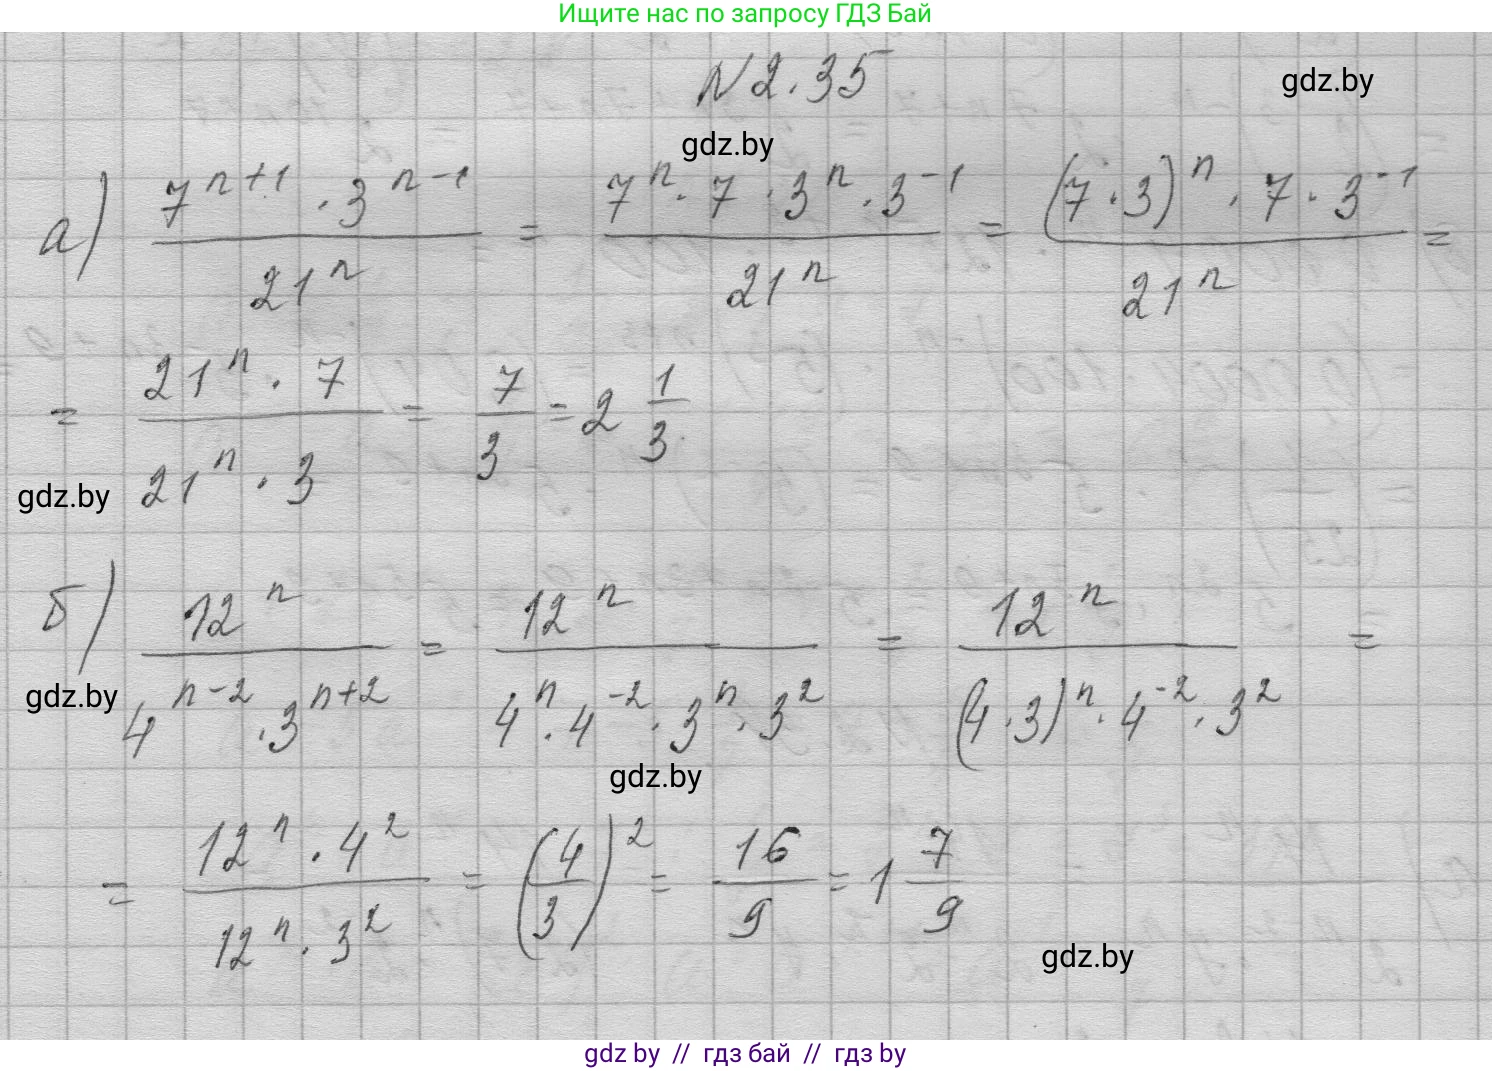 Ищите нас по запросу ГДЗ Бай
N 2.35
gdz.by
gdz.by
а) \frac{7^{n+1} \cdot 3^{n-1}}{21^n} = \frac{7^n \cdot 7 \cdot 3^n \cdot 3^{-1}}{21^n} = \frac{(7 \cdot 3)^n \cdot 7 \cdot 3^{-1}}{21^n} =
= \frac{21^n \cdot 7}{21^n \cdot 3} = \frac{7}{3} = 2 \frac{1}{3}
gdz.by
б) \frac{12^n}{4^{n-2} \cdot 3^{n+2}} = \frac{12^n}{4^n \cdot 4^{-2} \cdot 3^n \cdot 3^2} = \frac{12^n}{(4 \cdot 3)^n \cdot 4^{-2} \cdot 3^2} =
gdz.by
gdz.by
= \frac{12^n \cdot 4^2}{12^n \cdot 3^2} = \left(\frac{4}{3}\right)^2 = \frac{16}{9} = 1 \frac{7}{9}
gdz.by
gdz by // гдз бай // гдз by